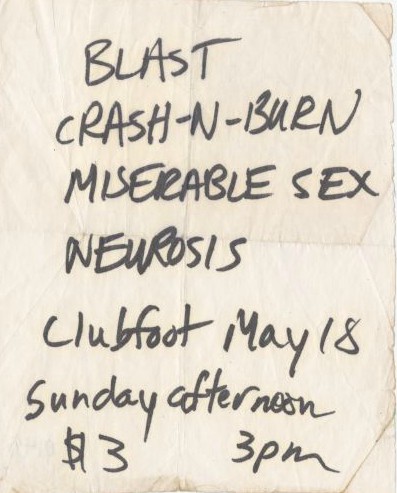 BLAST
CRASH-N-BURN
MISERABLE SEX
NEUROSIS
Clubfoot May 18
Sunday afternoon
$3 3pm